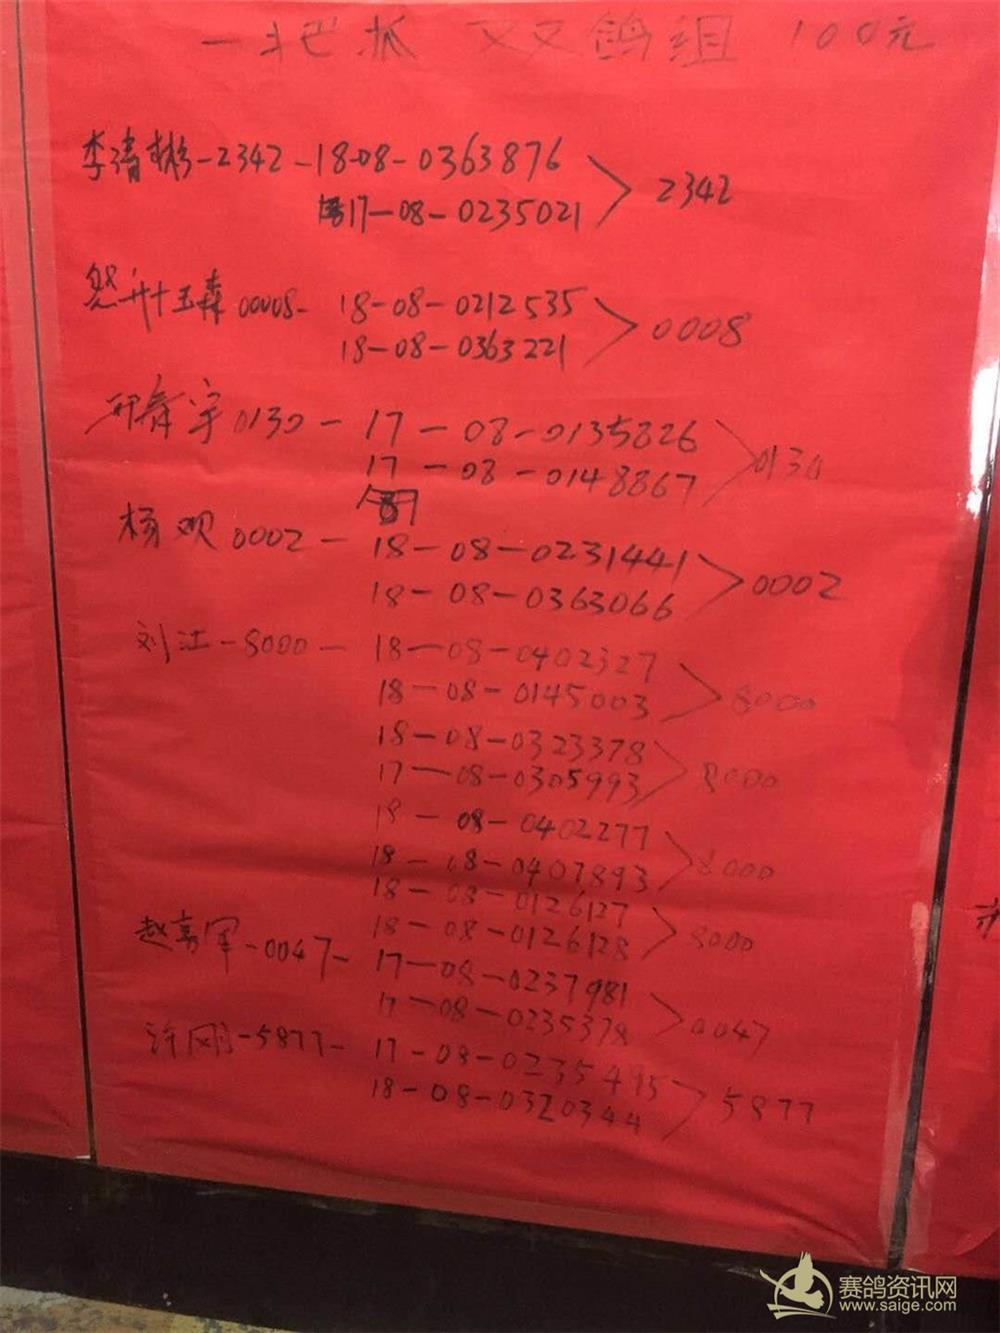 一把抓 双鸽组 100元
李清彬-2342-18-08-0363876 2342
17-08-0235021
十五森 00008- 18-08-0212535 0008
18-08-0363221
宇 0130- 17-08-0135826 0130
17-08-0148867
杨欢 0002- 18-08-0231441 0002
18-08-0363066
刘江-8000- 18-08-0402327 8000
18-08-0145003
18-08-0323378 8000
17-08-0305993
18-08-0402277 8000
18-08-0407893
18-08-0126127 8000
18-08-0126128
赵 军-0047- 17-08-0237981 0047
17-08-0235378
许刚-5877- 17-08-0235415 5877
18-08-0320344
赛鸽资讯网
www.saige.com